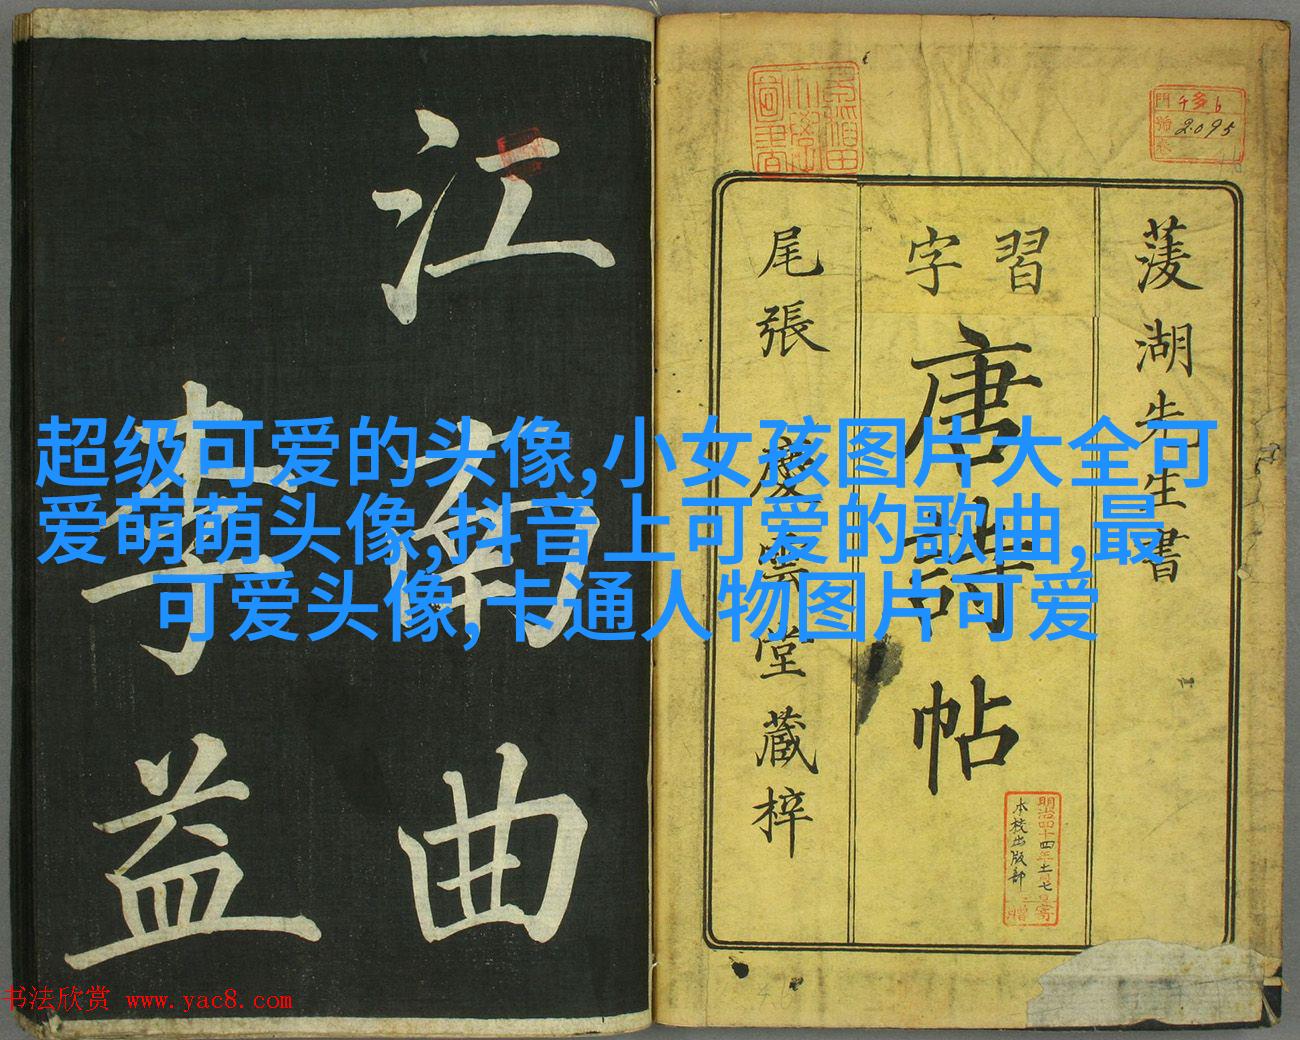 江南曲
李益
菱湖先生書
習字
唐詩帖
尾張 慶雲堂藏梓
門 千多6
號 2095
明治四十四年十二月七日寄贈
本校出版部
超级可爱的头像,小女孩图片大全可
爱萌萌头像,抖音上可爱的歌曲,最
可爱头像,卡通人物图片可爱
书法欣赏 www.yac8.com